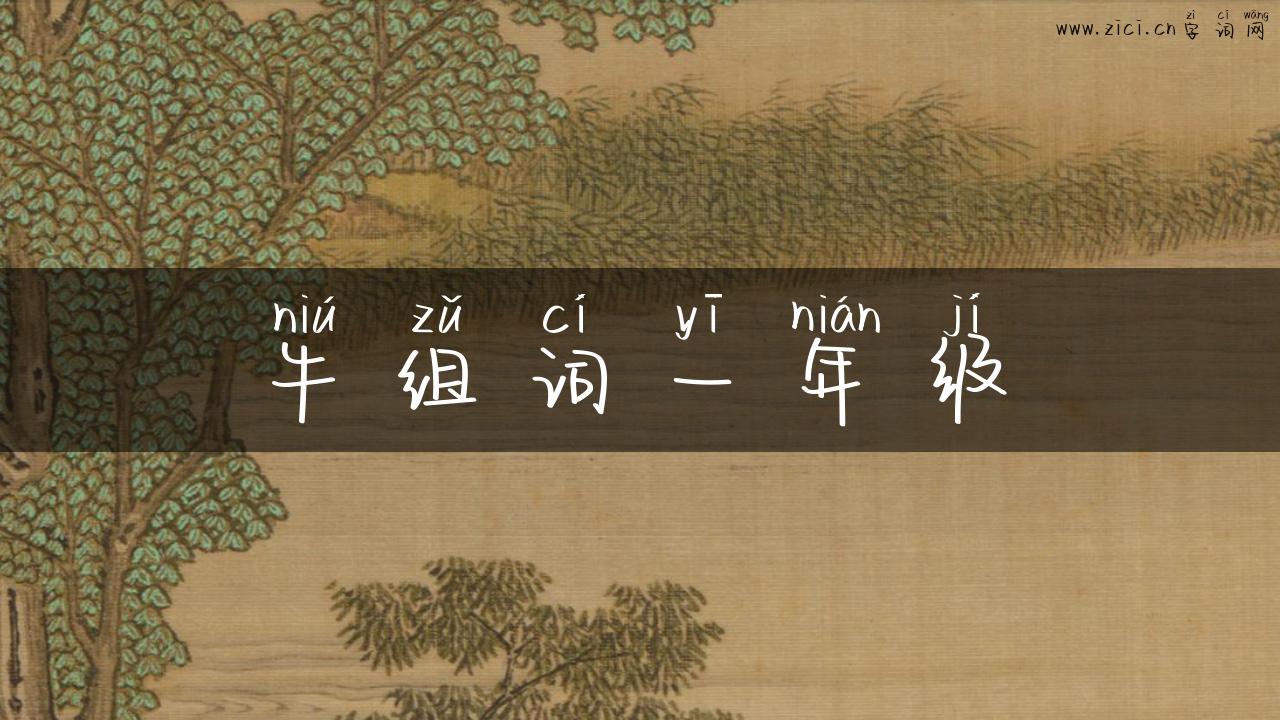 zì cí wǎng
www.zici.cn 字词网
niú zǔ cí yī nián jí
牛组词一年级